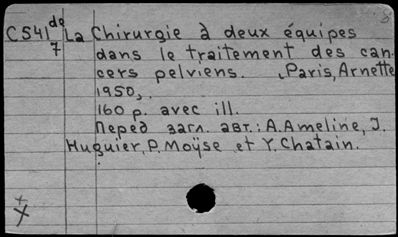 C541 de/7 La Chirurgie à deux équipes
dans le traitement des can-
cers pelviens. Paris, Arnette
1950,.
160 p. avec ill.
Перед загл. авт.: A. Ameline, J.
Huguier, P. Moÿse et Y. Chatain.